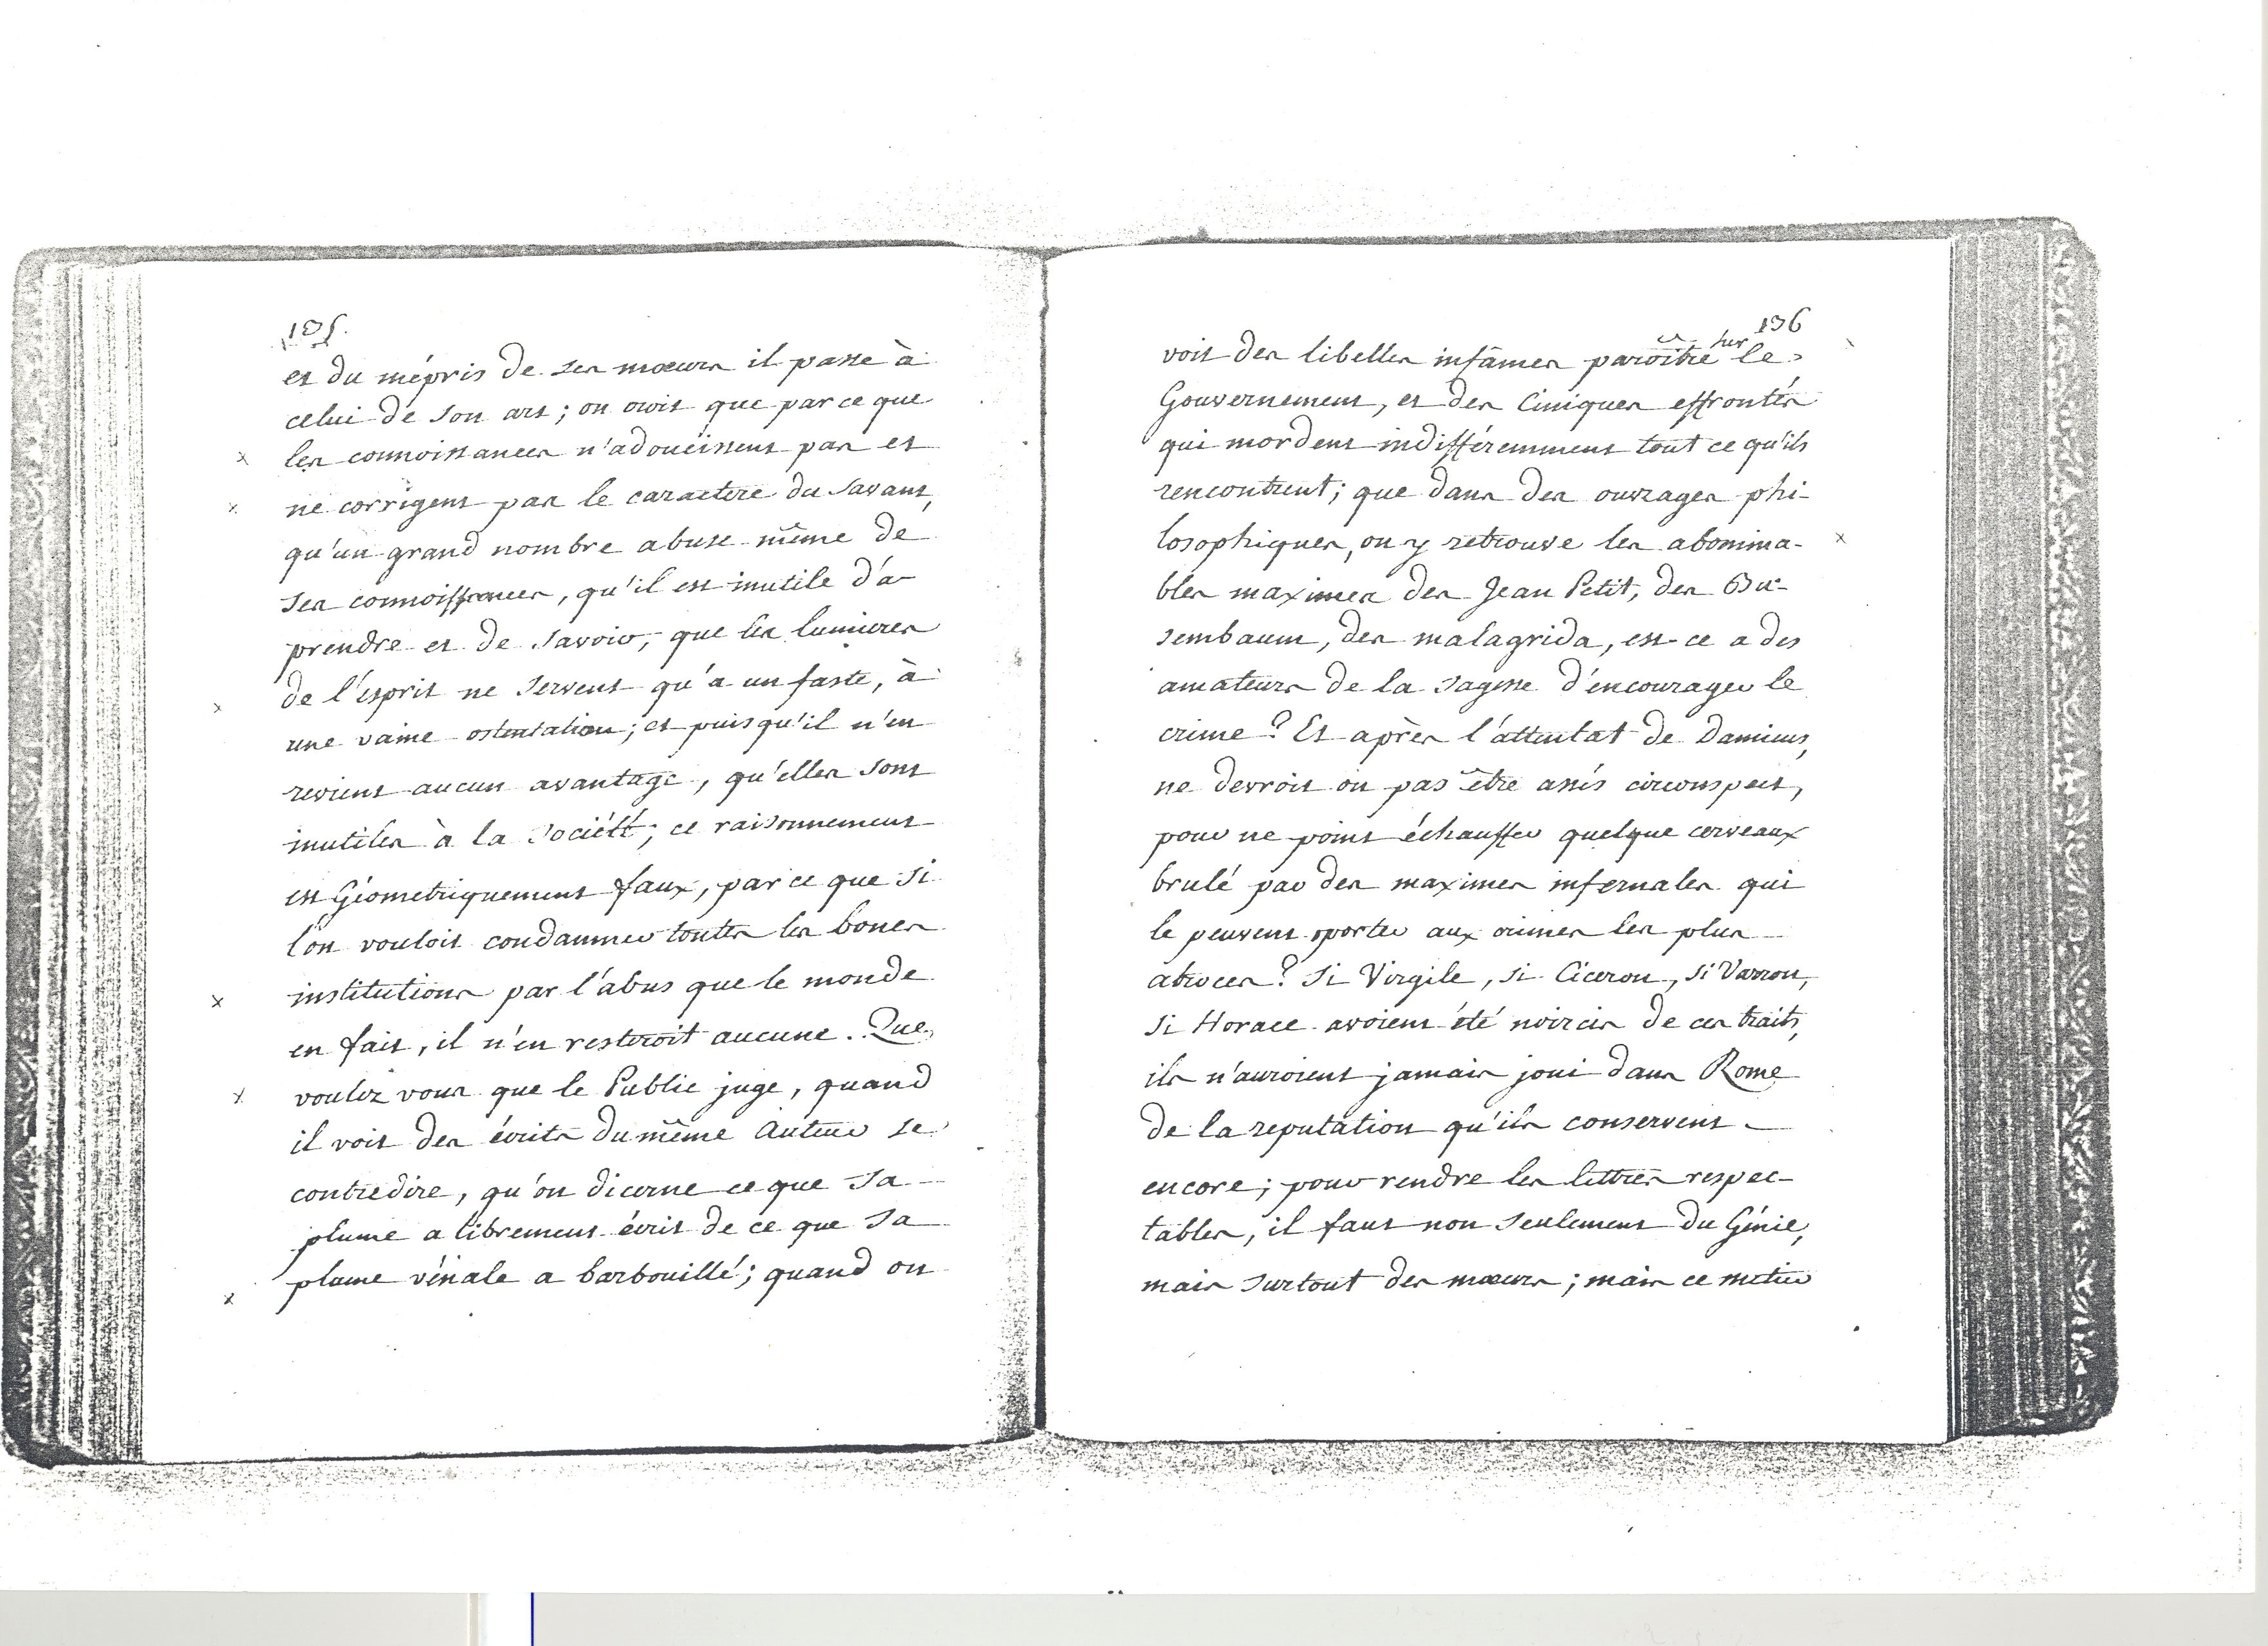 135.
et du mépris de ses mœurs il passe à
celui de son art; on croit que parce que
les connoissances n'adoucissent pas et
ne corrigent pas le caractere du savant,
qu'un grand nombre abuse même de
ses connoissances, qu'il est inutile d'a-
prendre et de savoir, que les lumieres
de l'esprit ne servent qu'a un faste, à
une vaine ostentation; et puisqu'il n'en
revient aucun avantage, qu'elles sont
inutiles à la société; ce raisonnement
est Géometriquement faux, parce que si
l'on vouloit condamner toutes les bones
institutions par l'abus que le monde
en fait, il n'en resteroit aucune. Que
voulez vous que le Public juge, quand
il voit des écrits du même Auteur se
contredire, qu'on dicerne ce que sa
plume a librement écrit de ce que sa
plume vénale a barbouillé; quand on
136
voit des libelles infâmes paroître sur le
Gouvernement, et des Ciniques effrontés
qui mordent indifféremment tout ce qu'ils
rencontrent; que dans des ouvrages phi-
losophiques, on y retrouve les abomina-
bles maximes des Jean Petit, des Bu-
sembaum, des malagrida, est-ce a des
amateurs de la sagesse d'encourager le
crime? Et après l'attentat de Damiens,
ne devroit on pas être assés circonspect,
pour ne point échauffer quelque cerveaux
brulé par des maximes infernales qui
le peuvent porter aux crimes les plus
atroces? si Virgile, si Ciceron, si Varron,
si Horace avoient été noircis de ces traits,
ils n'auroient jamais joui dans Rome
de la reputation qu'ils conservent
encore; pour rendre les lettres respec-
tables, il faut non seulement du Génie,
mais surtout des mœurs; mais ce metier